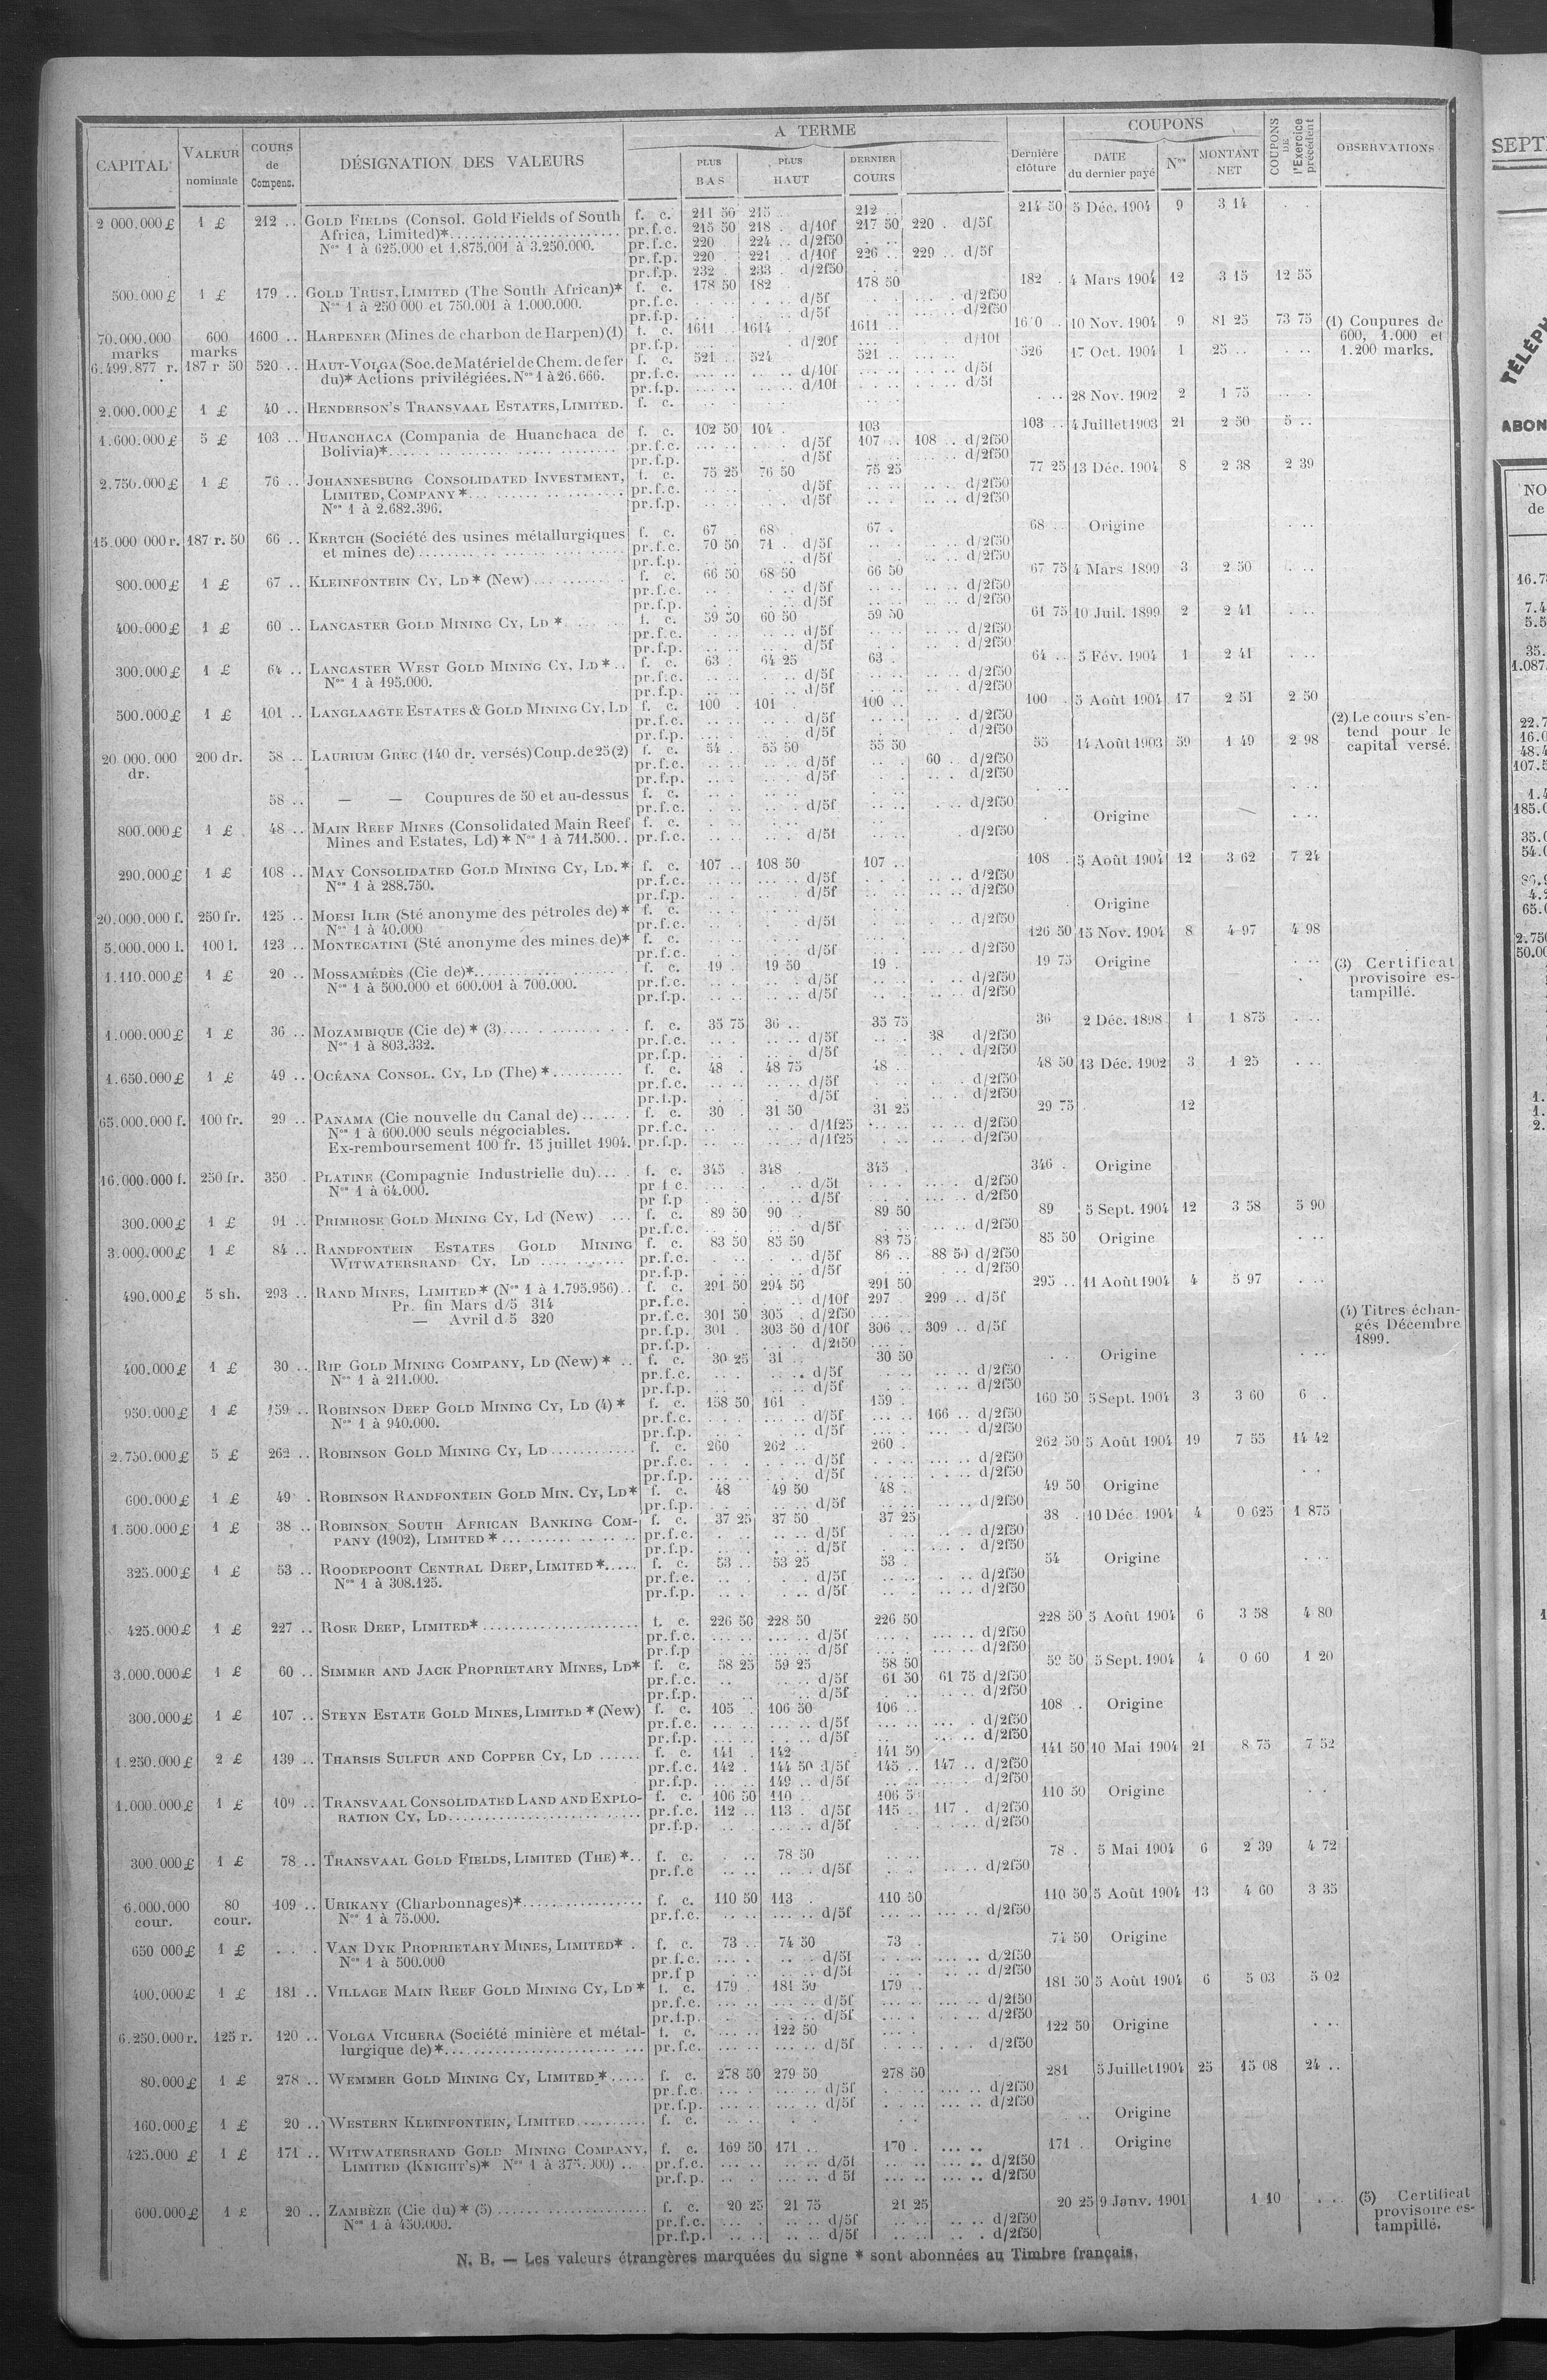 CAPITAL VALEUR nominale COURS de Compens. DÉSIGNATION DES VALEURS A TERME PLUS BAS PLUS HAUT DERNIER COURS Dernière clôture COUPONS DATE du dernier payé Nos MONTANT NET COUPONS DE l'Exercice précédent OBSERVATIONS
2 000.000 £ 1 £ 212 .. GOLD FIELDS (Consol. Gold Fields of South f. c. 211 50 215 . 212 .. 214 50 5 Déc. 1904 9 3 14
Africa, Limited)* pr.f.c. 215 50 218 . d/10f 217 50 220 . d/5f
Nos 1 à 625.000 et 1.875.001 à 3.250.000. pr.f.c. 220 . 224 .. d/2f50
pr.f.p. 220 . 221 .. d/10f 226 .. 229 .. d/5f
pr.f.p. 232 . 233 . d/2f50
500.000 £ 1 £ 179 .. GOLD TRUST, LIMITED (The South African)* f. c. 178 50 182 . 178 50 182 . 4 Mars 1904 12 3 15 12 55
Nos 1 à 250 000 et 750.001 à 1.000.000. pr.f.c. d/5f d/2f50
pr.f.p. d/5f d/2f50
70.000.000 marks 600 marks 1600 .. HARPENER (Mines de charbon de Harpen) (1) f. c. 1611 . 1614 . 1611 .. 10 Nov. 1904 9 81 25 73 75 (1) Coupures de 600, 1.000 et 1.200 marks.
pr.f.p. d/20f d/10f
6.499.877 r. 187 r 50 520 .. HAUT-VOLGA (Soc. de Matériel de Chem. de fer f. c. 521 .. 524 . 521 . 526 17 Oct. 1904 1 25 ..
du)* Actions privilégiées. Nos 1 à 26.666. pr.f.c. d/10f d/5f
pr.f.p. d/10f d/5f
2.000.000 £ 1 £ 40 .. HENDERSON'S TRANSVAAL ESTATES, LIMITED. f. c. 28 Nov. 1902 2 1 75
1.600.000 £ 5 £ 103 .. HUANCHACA (Compania de Huanchaca de f. c. 102 50 104 . 103 103 .. 4 Juillet 1903 21 2 50 5 ..
Bolivia)* pr.f.c. d/5f 107 .. 108 .. d/2f50
pr.f.p. d/5f d/2f50
2.750.000 £ 1 £ 76 .. JOHANNESBURG CONSOLIDATED INVESTMENT, f. c. 75 25 76 50 75 25 77 25 13 Déc. 1904 8 2 38 2 39
LIMITED, COMPANY * pr.f.c. d/5f d/2f50
Nos 1 à 2.682.396. pr.f.p. d/5f d/2f50
15.000 000 r. 187 r. 50 66 .. KERTCH (Société des usines métallurgiques f. c. 67 . 68 67 . 68 .. Origine
et mines de) pr.f.c. 70 50 71 . d/5f d/2f50
pr.f.p. d/5f d/2f50
800.000 £ 1 £ 67 .. KLEINFONTEIN CY, LD * (New) f. c. 66 50 68 50 66 50 67 75 4 Mars 1899 3 2 50
pr.f.c. d/5f d/2f50
pr.f.p. d/5f d/2f50
400.000 £ 1 £ 60 .. LANCASTER GOLD MINING CY, LD * f. c. 59 50 60 50 59 50 61 75 10 Juil. 1899 2 2 41
pr.f.c. d/5f d/2f50
pr.f.p. d/5f d/2f50
300.000 £ 1 £ 64 .. LANCASTER WEST GOLD MINING CY, LD * f. c. 63 . 64 25 63 . 64 .. 5 Fév. 1904 1 2 41
Nos 1 à 195.000. pr.f.c. d/5f d/2f50
pr.f.p. d/5f d/2f50
500.000 £ 1 £ 101 .. LANGLAAGTE ESTATES & GOLD MINING CY, LD f. c. 100 . 101 . 100 .. 100 . 5 Août 1904 17 2 51 2 50
pr.f.c. d/5f d/2f50
pr.f.p. d/5f d/2f50
20.000.000 dr. 200 dr. 58 .. LAURIUM GREC (140 dr. versés) Coup. de 25 (2) f. c. 54 . 55 50 55 50 55 14 Août 1903 59 1 49 2 98 (2) Le cours s'entend pour le capital versé.
pr.f.c. d/5f 60 .. d/2f50
pr.f.p. d/5f d/2f50
58 .. — — Coupures de 50 et au-dessus f. c.
pr.f.c. d/5f d/2f50
800.000 £ 1 £ 48 .. MAIN REEF MINES (Consolidated Main Reef f. c. Origine
Mines and Estates, Ld) * Nos 1 à 711.500 pr.f.c. d/5f d/2f50
290.000 £ 1 £ 108 .. MAY CONSOLIDATED GOLD MINING CY, LD. * f. c. 107 .. 108 50 107 .. 108 . 5 Août 1904 12 3 62 7 24
Nos 1 à 288.750. pr.f.c. d/5f d/2f50
pr.f.p. d/5f d/2f50
20.000.000 f. 250 fr. 125 .. MOESI ILIR (Sté anonyme des pétroles de) * f. c. Origine
Nos 1 à 40.000 pr.f.c. d/5f d/2f50
5.000.000 l. 100 l. 123 .. MONTECATINI (Sté anonyme des mines de)* f. c. 126 50 15 Nov. 1904 8 4 97 4 98
pr.f.c. d/5f d/2f50
1.110.000 £ 1 £ 20 .. MOSSAMÉDÈS (Cie de)* f. c. 19 . 19 50 19 . 19 75 Origine (3) Certificat provisoire estampillé.
Nos 1 à 500.000 et 600.001 à 700.000. pr.f.c. d/5f d/2f50
pr.f.p. d/5f d/2f50
1.000.000 £ 1 £ 36 .. MOZAMBIQUE (Cie de) * (3) f. c. 35 75 36 .. 35 75 36 2 Déc. 1898 1 1 875
Nos 1 à 803.332. pr.f.c. d/5f 38 d/2f50
pr.f.p. d/5f d/2f50
1.650.000 £ 1 £ 49 .. OCÉANA CONSOL. CY, LD (The) * f. c. 48 . 48 75 48 .. 48 50 13 Déc. 1902 3 1 25
pr.f.c. d/5f d/2f50
pr.f.p. d/5f d/2f50
65.000.000 f. 100 fr. 29 .. PANAMA (Cie nouvelle du Canal de) f. c. 30 . 31 50 31 25 29 75 12
Nos 1 à 600.000 seuls négociables. pr.f.c. d/1f25 d/2f50
Ex-remboursement 100 fr. 15 juillet 1904. pr.f.p. d/1f25 d/2f50
16.000.000 f. 250 fr. 350 . PLATINE (Compagnie Industrielle du) f. c. 345 . 348 . 345 . 346 . Origine
Nos 1 à 64.000. pr f c. d/5f d/2f50
pr f.p d/5f d/2f50
300.000 £ 1 £ 91 .. PRIMROSE GOLD MINING CY, Ld (New) f. c. 89 50 90 . 89 50 89 5 Sept. 1904 12 3 58 5 90
pr.f.c. d/5f d/2f50
3.000.000 £ 1 £ 84 .. RANDFONTEIN ESTATES GOLD MINING f. c. 83 50 85 50 83 75 85 50 Origine
WITWATERSRAND CY, LD pr.f.c. d/5f 86 .. 88 50 d/2f50
pr.f.p. d/5f d/2f50
490.000 £ 5 sh. 293 .. RAND MINES, LIMITED * (Nos 1 à 1.795.956) f. c. 291 50 294 50 291 50 295 .. 11 Août 1904 4 5 97
Pr. fin Mars d/5 314 pr.f.c. d/10f 297 . 299 .. d/5f
— Avril d/5 320 pr.f.c. 301 50 305 . d/2f50
pr.f.p. 301 . 303 50 d/10f 306 .. 309 .. d/5f (4) Titres échangés Décembre 1899.
pr.f.p. d/2f50
400.000 £ 1 £ 30 .. RIP GOLD MINING COMPANY, LD (New) * f. c. 30 25 31 .. 30 50 Origine
Nos 1 à 211.000. pr.f.c. d/5f d/2f50
pr.f.p. d/5f d/2f50
950.000 £ 1 £ 159 .. ROBINSON DEEP GOLD MINING CY, LD (4) * f. c. 158 50 161 . 159 . 160 50 5 Sept. 1904 3 3 60 6 .
Nos 1 à 940.000. pr.f.c. d/5f 166 .. d/2f50
pr.f.p. d/5f d/2f50
2.750.000 £ 5 £ 262 .. ROBINSON GOLD MINING CY, LD f. c. 260 262 .. 260 . 262 50 5 Août 1904 19 7 55 14 42
pr.f.c. d/5f d/2f50
pr.f.p. d/5f d/2f50
600.000 £ 1 £ 49 . ROBINSON RANDFONTEIN GOLD MIN. CY, LD * f. c. 48 49 50 48 . 49 50 Origine
pr.f.p. d/5f d/2f50
1.500.000 £ 1 £ 38 .. ROBINSON SOUTH AFRICAN BANKING COM- f. c. 37 25 37 50 37 25 38 . 10 Déc. 1904 4 0 625 1 875
PANY (1902), LIMITED * pr.f.c. d/5f d/2f50
pr.f.p. d/5f d/2f50
325.000 £ 1 £ 53 .. ROODEPOORT CENTRAL DEEP, LIMITED * f. c. 53 .. 53 25 53 . 54 Origine
Nos 1 à 308.125. pr.f.c. d/5f d/2f50
pr.f.p. d/5f d/2f50
425.000 £ 1 £ 227 .. ROSE DEEP, LIMITED * f. c. 226 50 228 50 226 50 228 50 5 Août 1904 6 3 58 4 80
pr.f.c. d/5f d/2f50
pr.f.p d/5f d/2f50
3.000.000 £ 1 £ 60 .. SIMMER AND JACK PROPRIETARY MINES, LD * f. c. 58 25 59 25 58 50 59 50 5 Sept. 1904 4 0 60 1 20
pr.f.c. d/5f 61 50 61 75 d/2f50
pr.f.p. d/5f d/2f50
300.000 £ 1 £ 107 .. STEYN ESTATE GOLD MINES, LIMITED * (New) f. c. 105 . 106 50 106 .. 108 . Origine
pr.f.c. d/5f d/2f50
pr.f.p. d/5f d/2f50
1.250.000 £ 2 £ 139 .. THARSIS SULFUR AND COPPER CY, LD f. c. 141 . 142 . 141 50 141 50 10 Mai 1904 21 8 75 7 52
pr.f.c. 142 . 144 50 d/5f 145 .. 147 .. d/2f50
pr.f.p. 149 .. d/5f d/2f50
1.000.000 £ 1 £ 109 .. TRANSVAAL CONSOLIDATED LAND AND EXPLO- f. c. 106 50 110 .. 106 50 110 50 Origine
RATION CY, LD pr.f.c. 112 .. 113 . d/5f 115 .. 117 . d/2f50
pr.f.p. d/5f d/2f50
300.000 £ 1 £ 78 .. TRANSVAAL GOLD FIELDS, LIMITED (THE) * f. c. 78 50 78 . 5 Mai 1904 6 2 39 4 72
pr.f.c d/5f d/2f50
6.000.000 cour. 80 cour. 109 .. URIKANY (Charbonnages)* f. c. 110 50 113 . 110 50 110 50 5 Août 1904 13 4 60 3 35
Nos 1 à 75.000. pr.f.c. d/5f d/2f50
650 000 £ 1 £ VAN DYK PROPRIETARY MINES, LIMITED * f. c. 73 .. 74 50 73 . 74 50 Origine
Nos 1 à 500.000 pr.f.c. d/5f d/2f50
pr.f p d/5f d/2f50
400.000 £ 1 £ 181 .. VILLAGE MAIN REEF GOLD MINING CY, LD * f. c. 179 . 181 50 179 .. 181 50 5 Août 1904 6 5 03 5 02
pr.f.c. d/5f d/2f50
pr.f.p. d/5f d/2f50
6.250.000 r. 125 r. 120 .. VOLGA VICHERA (Société minière et métal- f. c. 122 50 122 50 Origine
lurgique de) * pr.f.c. d/5f d/2f50
80.000 £ 1 £ 278 .. WEMMER GOLD MINING CY, LIMITED * f. c. 278 50 279 50 278 50 281 5 Juillet 1904 25 15 08 24 ..
pr.f.c. d/5f d/2f50
pr.f.p. d/5f d/2f50
160.000 £ 1 £ 20 .. WESTERN KLEINFONTEIN, LIMITED f. c. Origine
425.000 £ 1 £ 171 .. WITWATERSRAND GOLD MINING COMPANY, f. c. 169 50 171 .. 170 . 171 .. Origine
LIMITED (KNIGHT'S)* Nos 1 à 375.000) pr.f.c. d/5f d/2f50
pr.f.p. d 5f d/2f50
600.000 £ 1 £ 20 .. ZAMBÈZE (Cie du) * (5) f. c. 20 25 21 75 21 25 20 25 9 Janv. 1901 1 10 (5) Certificat provisoire estampillé.
Nos 1 à 450.000. pr.f.c. d/5f d/2f50
pr.f.p. d/5f d/2f50
N. B. — Les valeurs étrangères marquées du signe * sont abonnées au Timbre français.
SEPT
TÉLÉPH
ABON
NO
de